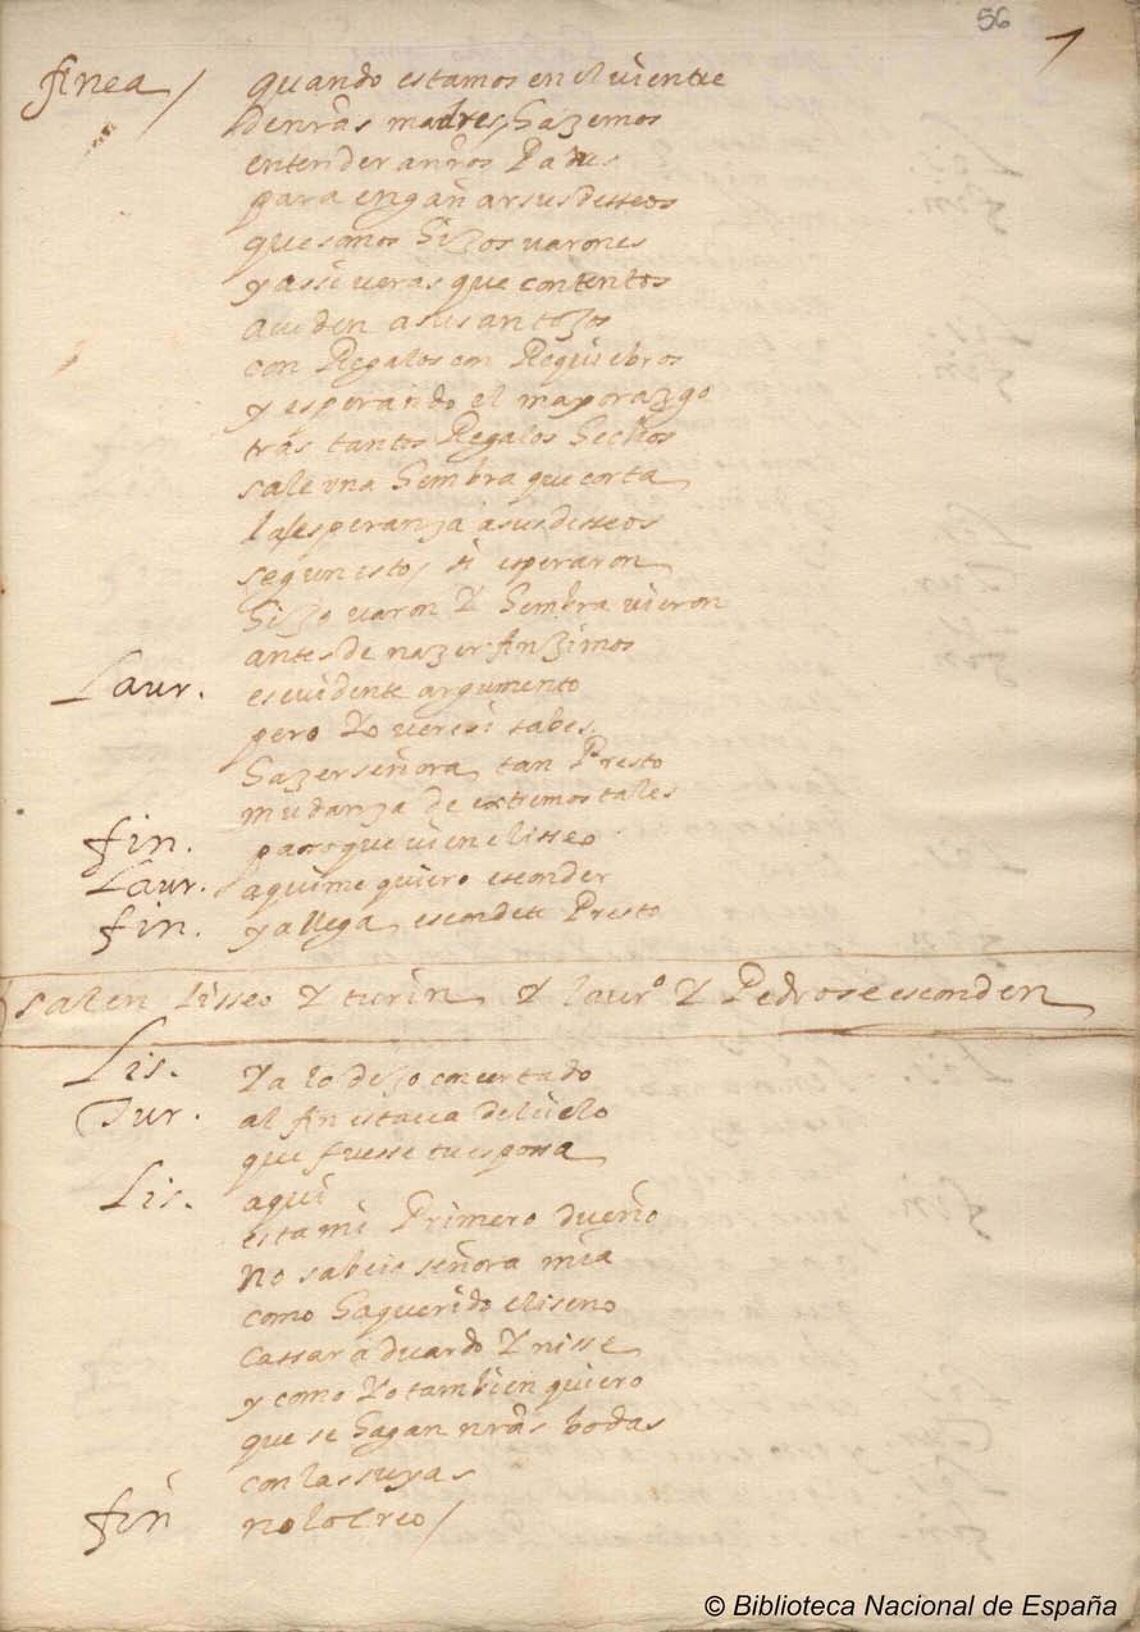 56
finea / quando estamos en el uientre
de nrãs madres, hazemos
entender a nrõs Padres
para engañar sus desseos
que somos hijos uarones
y assi ueras que contentos
acuden a sus antojos
con Regalos con Requiebros
y esperando el mayorazgo
tras tantos Regalos hechos
sale vna hembra que corta
la esperanza a sus desseos
segun esto, si esperaron
hijo uaron Y hembra uieron
antes de nazer finzimos
Laur. es euidente argumento
pero Yo uere si sabes
hazer señora, tan Presto
mudanza de extremos tales
fin. passo que uiene lisseo
Laur. aqui me quiero esconder
fin. ya llega, escondete Presto
salen lisseo Y turin Y laurº Y Pedro se esconden
Lis. Ya lo dejo concertado
Tur. al fin estaua del cielo
que fuesse tu esposa
Lis. aqui
esta mi Primero dueño
No sabeis señora mia
como ha querido eliseno
cassar a duardo Y nisse
y como Yo tambien quiero
que se hagan nrãs bodas
con las suyas
fin no lo creo /
© Biblioteca Nacional de España